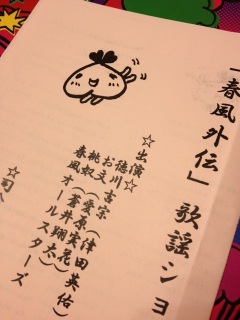 「春風外伝」歌謡ショ
☆出演☆
徳川吉宗(津田英佑)
お文(愛原実花)
桃叔(蒼井翔太)
春風オールスターズ
☆司